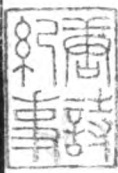 唐詩
紀事